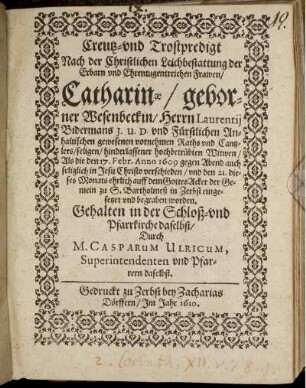 19.
Creutz-vnd Trostpredigt
Nach der Christlichen Leichbestattung der
Erbarn vnd Ehrentugentreichen Frawen/
Catharinæ/ gebor-
ner Wesenbeckin/ Herrn Laurentij
Bidermans J. U. D. vnd Fürstlichen An-
halnischen gewesenen vornehmen Raths vnd Cantz-
lers/ seligen/ hinderlassener hochbetrübten Witwen/
Als die den 17. Febr. Anno 1609 gegen Abend ann
seliglich in Jesu Christo verschieden/ vnd den 21. die-
ses Monats ehrlich auff dem GottesAcker der Ge-
mein zu S. Bartholmeß in Zerbst einge-
setzet vnd begraben worden,
Gehalten in der Schloß-vnd
Pfarrkirche daselbst/
Durch
M. CASPARUM ULRICUM,
Superintendenten vnd Pfar-
rern daselbst.
Gedruckt zu Zerbst bey Zacharias
Dörffern/ Im Jahr 1610.
2. Corinth. XII. v.